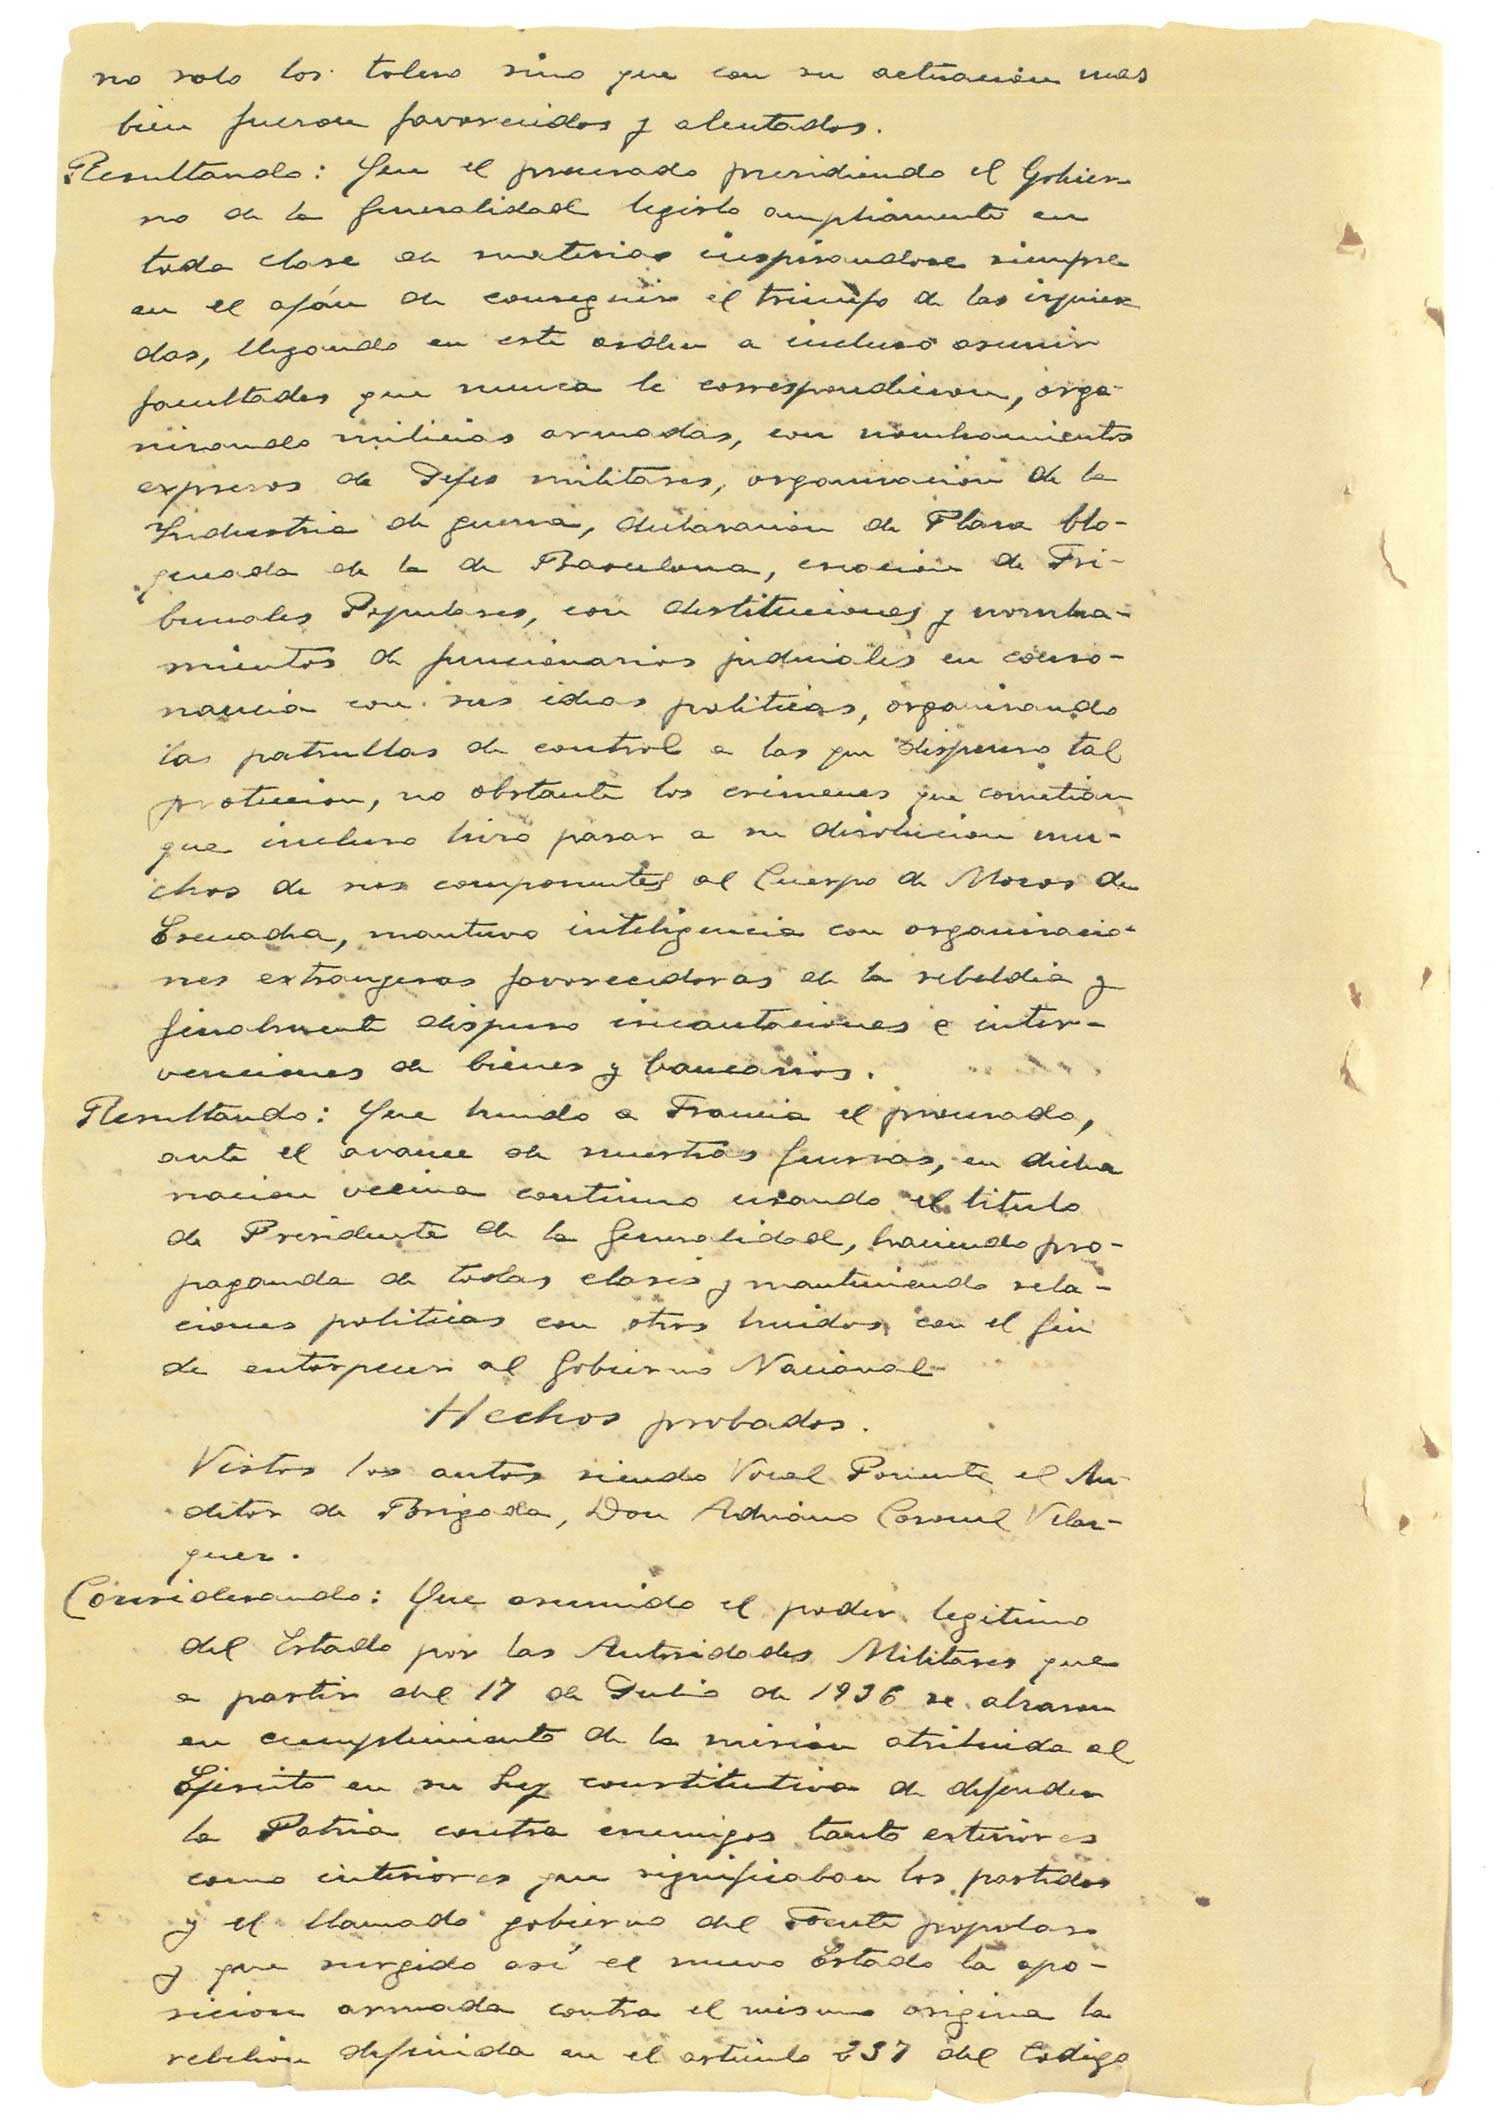 no solo los tolero sino que con su actuacion mas
bien fueron favorecidos y alentados.
Resultando: Que el procesado presidiendo el Gobier
no de la Generalidad legisló ampliamente en
toda clase de materias inspirandose siempre
en el afán de conseguir el triunfo de las izquier
das, llegando en este orden a incluso asumir
facultades que nunca le correspondieron, orga-
nizando milicias armadas, con nombramientos
expresos de Jefes militares, organizacion de la
Industria de guerra, declaracion de Plaza blo-
queada de la de Barcelona, creacion de Tri-
bunales Populares, con destituciones y nombra-
mientos de funcionarios judiciales en conso-
nancia con sus ideas politicas, organizando
las patrullas de control a las que dispenso tal
proteccion, no obstante los crimenes que cometian
que incluso hizo pasar a su disolucion mu-
chos de sus componentes al Cuerpo de Mozos de
Escuadra, mantuvo inteligencia con organizacio-
nes extranjeras favorecedoras de la rebeldia y
finalmente dispuso incautaciones e inter-
venciones de bienes y bancarios.
Resultando: Que huido a Francia el procesado,
ante el avance de nuestras fuerzas, en dicha
nacion vecina continuo usando el titulo
de Presidente de la Generalidad, haciendo pro-
paganda de todas clases y manteniendo rela-
ciones politicas con otros huidos con el fin
de entorpecer al Gobierno Nacional-
Hechos probados.
Vistos los autos siendo Vocal Ponente el Au-
ditor de Brigada, Don Adriano Coronel Velaz-
quez.
Considerando: Que asumido el poder legitimo
del Estado por las Autoridades Militares que
a partir del 17 de Julio de 1936 se alzaron
en cumplimiento de la mision atribuida al
Ejército en su Ley constitutiva de defender
la Patria contra enemigos tanto exteriores
como interiores que significaban los partidos
y el llamado gobierno del Frente popular
y que surgido así el nuevo Estado la opo-
sicion armada contra el mismo origina la
rebelion definida en el articulo 237 del Codigo